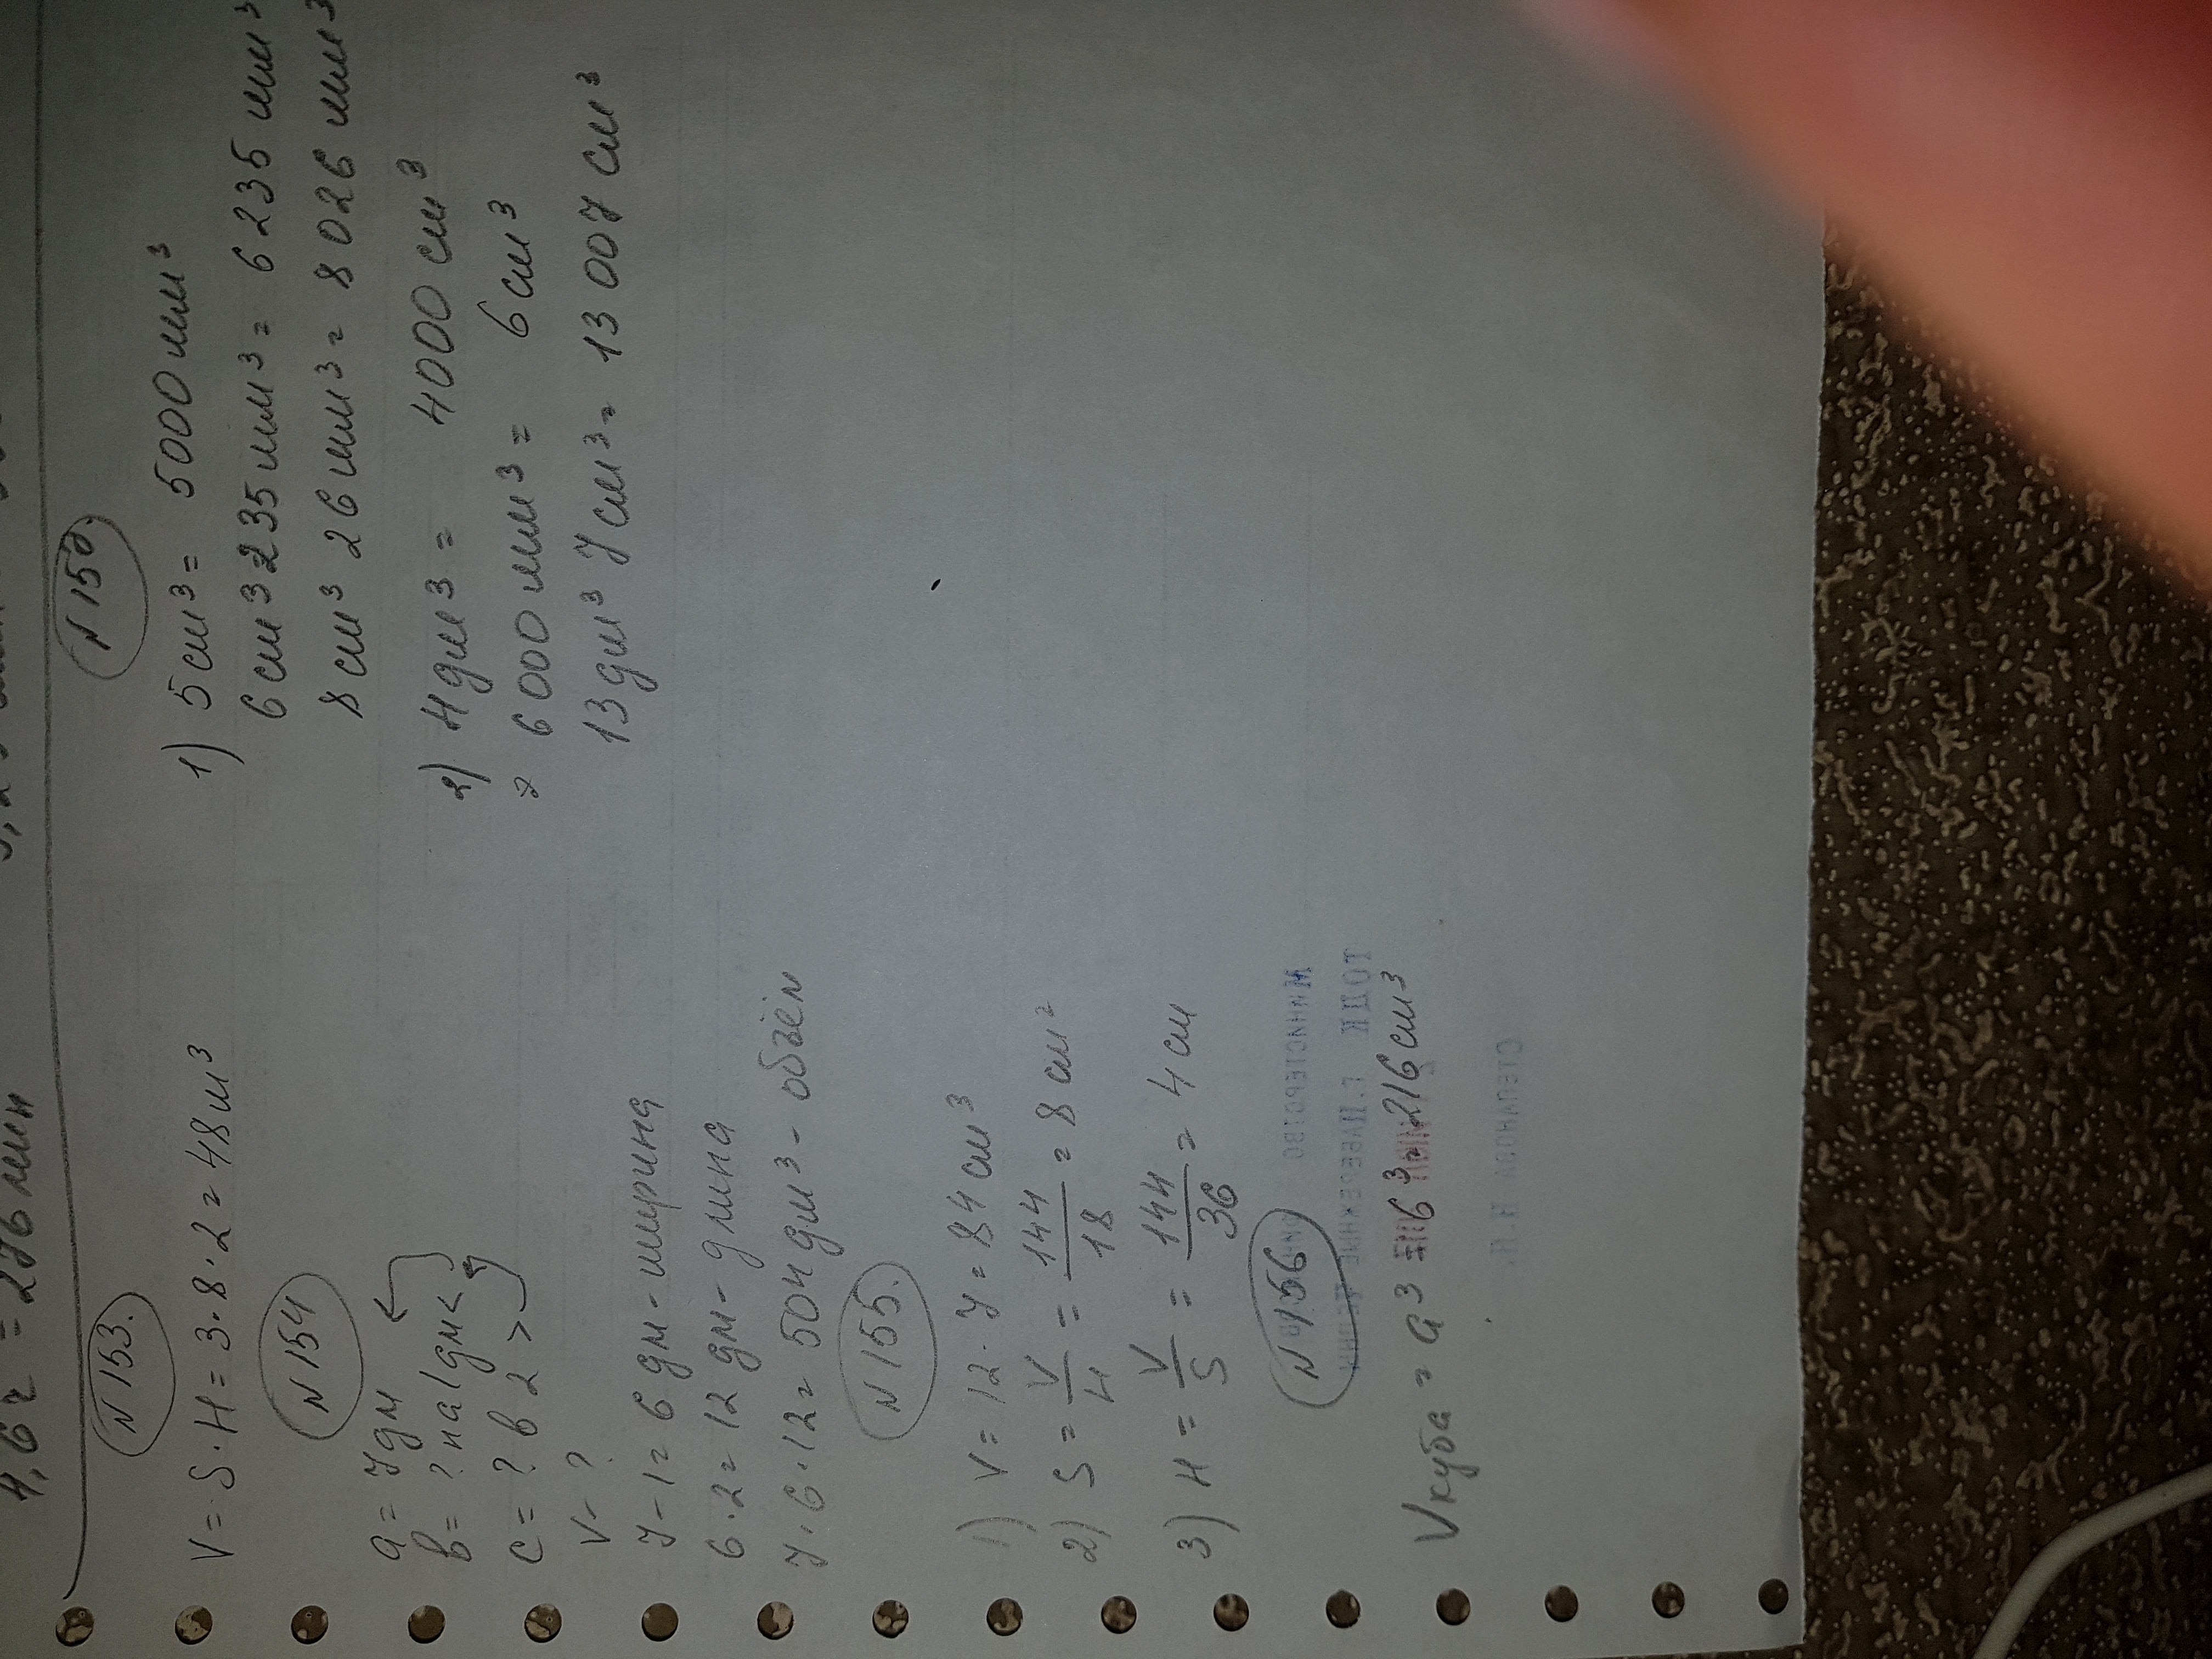 4,6 г = 276 мин
N 153.
V = S · H = 3 · 8 · 2 = 48 м³
N 154
a = 7 дм
b = ? на 1 дм <
c = ? в 2 >
V - ?
7 - 1 = 6 дм - ширина
6 · 2 = 12 дм - длина
7 · 6 · 12 = 504 дм³ - объём
N 155.
1) V = 12 · 7 = 84 см³
2) S = V/H = 144/18 = 8 см²
3) H = V/S = 144/36 = 4 см
N 156
Vкуба = a³ = 6³ = 216 см³
1) 5 см³ = 5000 мм³
6 см³ 235 мм³ = 6 235 мм³
8 см³ 26 мм³ = 8 026 мм³
2) 4 дм³ = 4000 см³
6 000 мм³ = 6 см³
13 дм³ 7 см³ = 13 007 см³